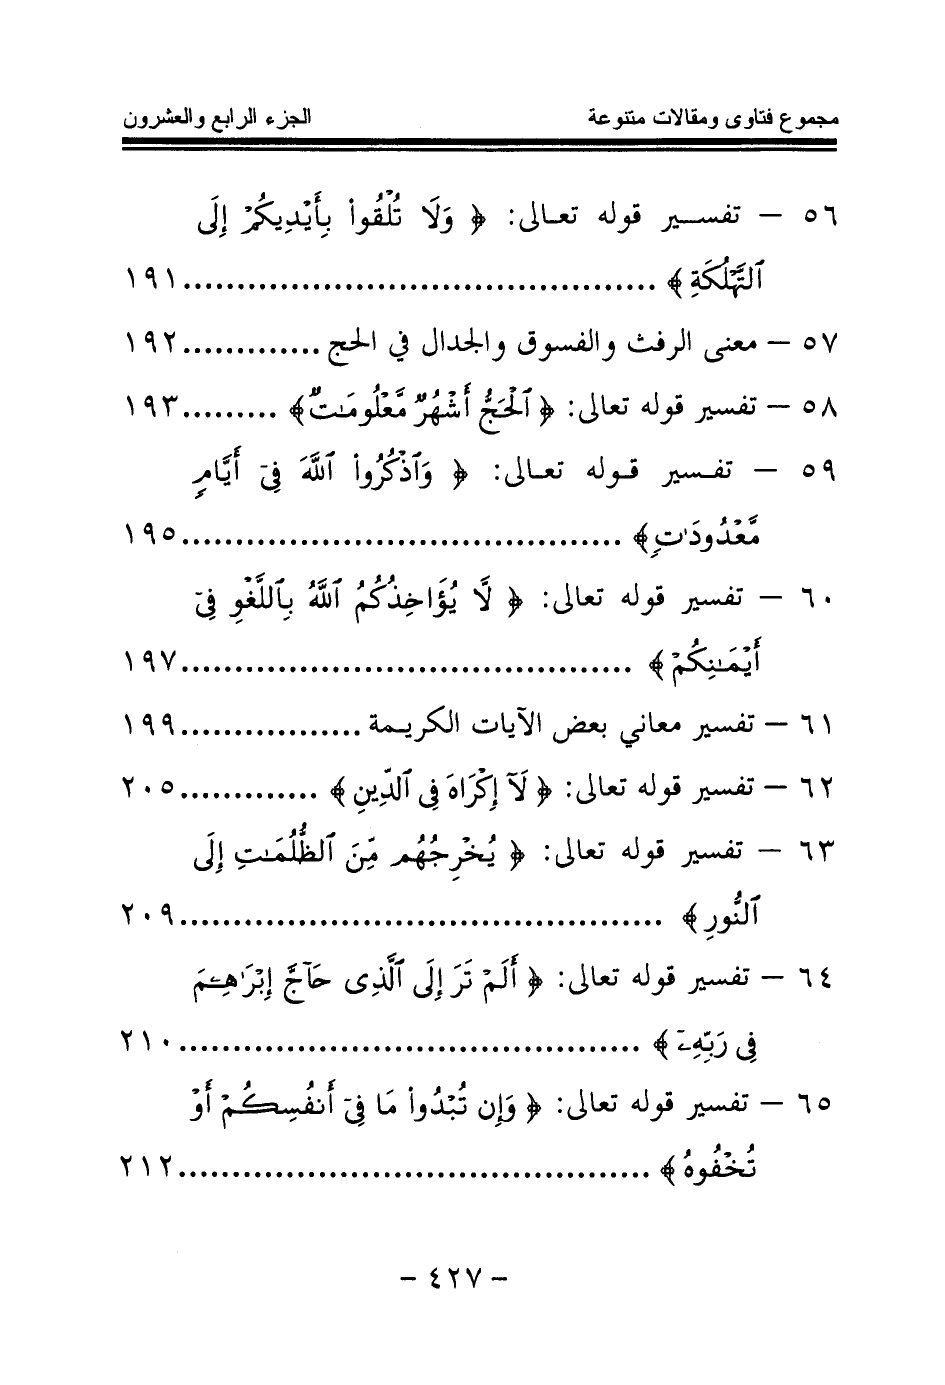 مجموع فتاوى ومقالات متنوعة الجزء الرابع والعشرون
٥٦ – تفسير قوله تعالى: ﴿ وَلَا تُلْقُوا۟ بِأَيْدِيكُمْ إِلَى
ٱلتَّهْلُكَةِ ﴾ ............................................ ١٩١
٥٧ – معنى الرفث والفسوق والجدال في الحج ............. ١٩٢
٥٨ – تفسير قوله تعالى: ﴿ ٱلْحَجُّ أَشْهُرٌ مَّعْلُومَـٰتٌ ﴾ ......... ١٩٣
٥٩ – تفسير قوله تعالى: ﴿ وَٱذْكُرُوا۟ ٱللَّهَ فِىٓ أَيَّامٍ
مَّعْدُودَٰتٍ ﴾ ......................................... ١٩٥
٦٠ – تفسير قوله تعالى: ﴿ لَّا يُؤَاخِذُكُمُ ٱللَّهُ بِٱللَّغْوِ فِىٓ
أَيْمَـٰنِكُمْ ﴾ .......................................... ١٩٧
٦١ – تفسير معاني بعض الآيات الكريمة ................. ١٩٩
٦٢ – تفسير قوله تعالى: ﴿ لَآ إِكْرَاهَ فِى ٱلدِّينِ ﴾ ............. ٢٠٥
٦٣ – تفسير قوله تعالى: ﴿ يُخْرِجُهُم مِّنَ ٱلظُّلُمَـٰتِ إِلَى
ٱلنُّورِ ﴾ ............................................. ٢٠٩
٦٤ – تفسير قوله تعالى: ﴿ أَلَمْ تَرَ إِلَى ٱلَّذِى حَآجَّ إِبْرَٰهِـۧمَ
فِى رَبِّهِۦٓ ﴾ ........................................... ٢١٠
٦٥ – تفسير قوله تعالى: ﴿ وَإِن تُبْدُوا۟ مَا فِىٓ أَنفُسِكُمْ أَوْ
تُخْفُوهُ ﴾ ............................................ ٢١٢
– ٤٢٧ –